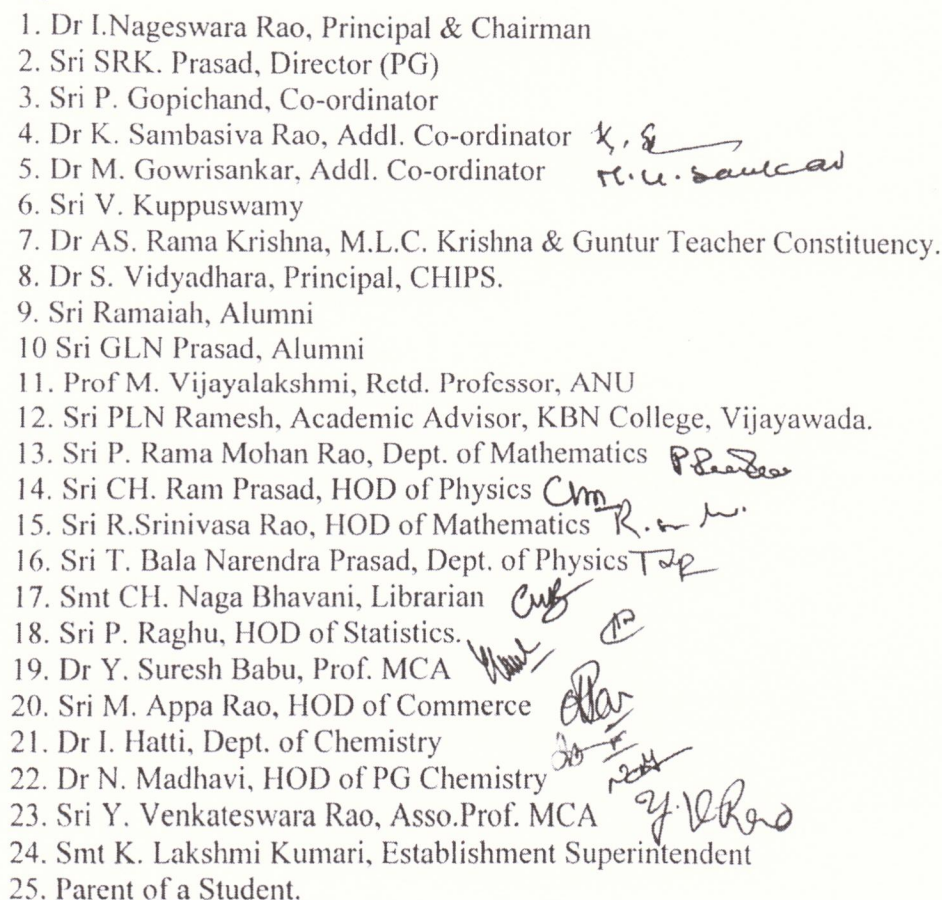 1. Dr I.Nageswara Rao, Principal & Chairman
2. Sri SRK. Prasad, Director (PG)
3. Sri P. Gopichand, Co-ordinator
4. Dr K. Sambasiva Rao, Addl. Co-ordinator K. S
5. Dr M. Gowrisankar, Addl. Co-ordinator
6. Sri V. Kuppuswamy
7. Dr AS. Rama Krishna, M.L.C. Krishna & Guntur Teacher Constituency.
8. Dr S. Vidyadhara, Principal, CHIPS.
9. Sri Ramaiah, Alumni
10 Sri GLN Prasad, Alumni
11. Prof M. Vijayalakshmi, Retd. Professor, ANU
12. Sri PLN Ramesh, Academic Advisor, KBN College, Vijayawada.
13. Sri P. Rama Mohan Rao, Dept. of Mathematics
14. Sri CH. Ram Prasad, HOD of Physics
15. Sri R.Srinivasa Rao, HOD of Mathematics
16. Sri T. Bala Narendra Prasad, Dept. of Physics
17. Smt CH. Naga Bhavani, Librarian
18. Sri P. Raghu, HOD of Statistics.
19. Dr Y. Suresh Babu, Prof. MCA
20. Sri M. Appa Rao, HOD of Commerce
21. Dr I. Hatti, Dept. of Chemistry
22. Dr N. Madhavi, HOD of PG Chemistry
23. Sri Y. Venkateswara Rao, Asso.Prof. MCA Y.V.Rao
24. Smt K. Lakshmi Kumari, Establishment Superintendent
25. Parent of a Student.